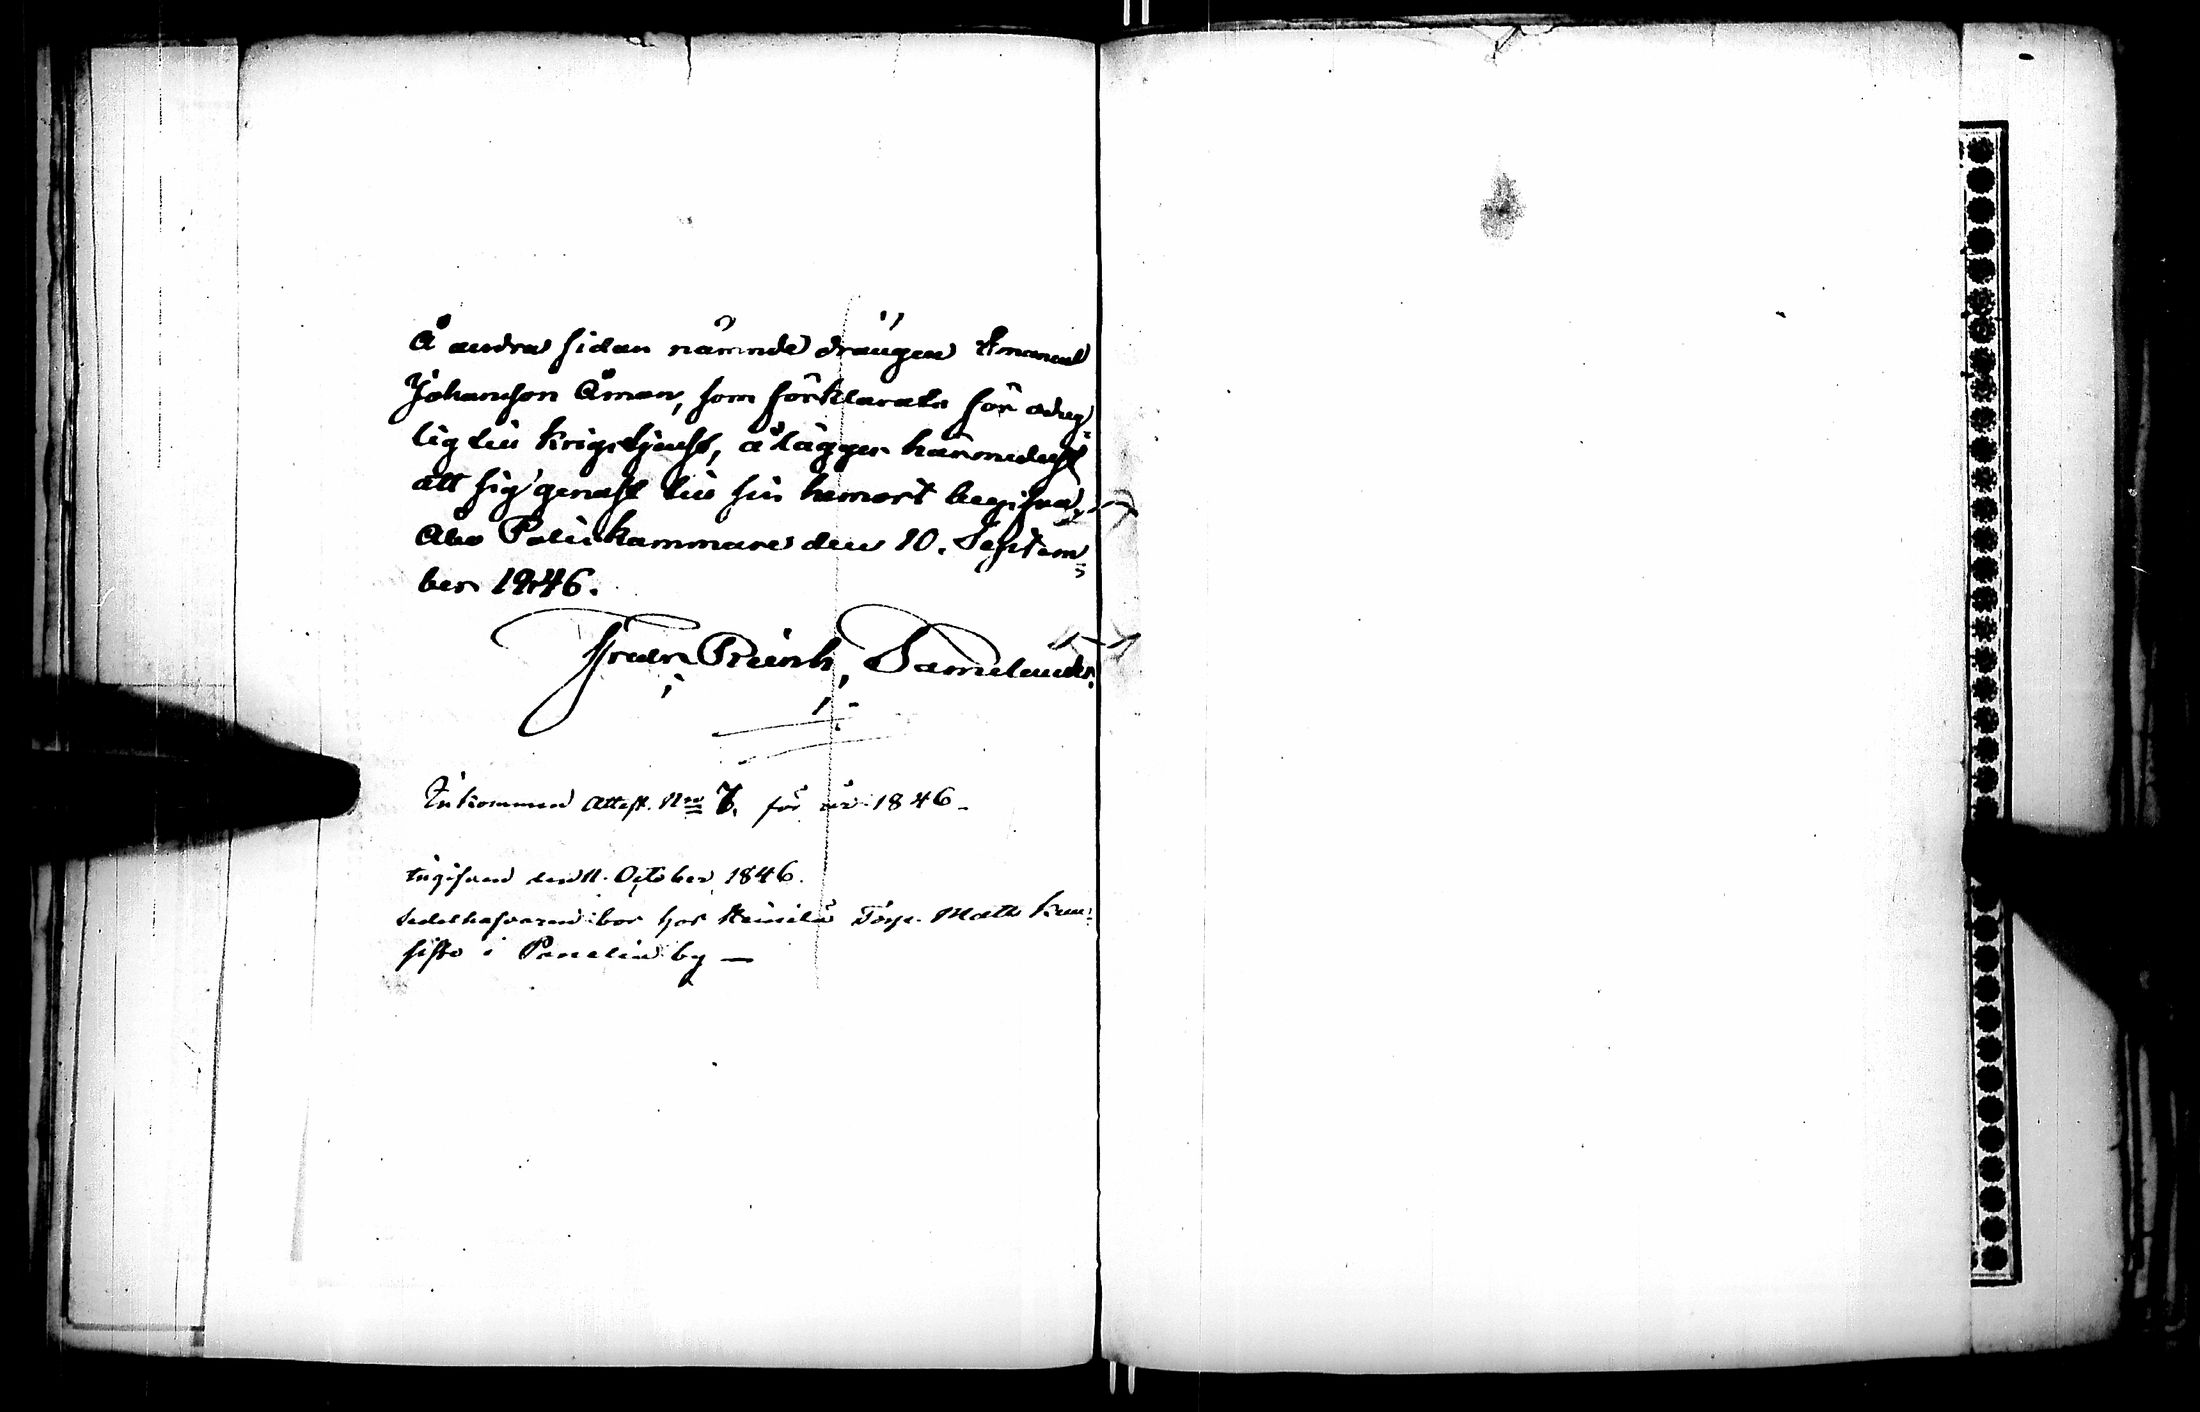 Å andra sidan nämnde drängen Emanuel
Johansson Åman, som förklarats för odug-
lig till krigstjenst, ålägges härmedelst
att sig genast till sin hemort begifva,
Åbo Polis kammare den 10. Septem-
ber 1846.
Fredr Reinh, Samelander.
Inkommen Attest. Nro 7. för år 1846 -
tilgifven den 11. October 1846.
Sedelhafvaren bor hos Torp. Matts
i Panelia by —